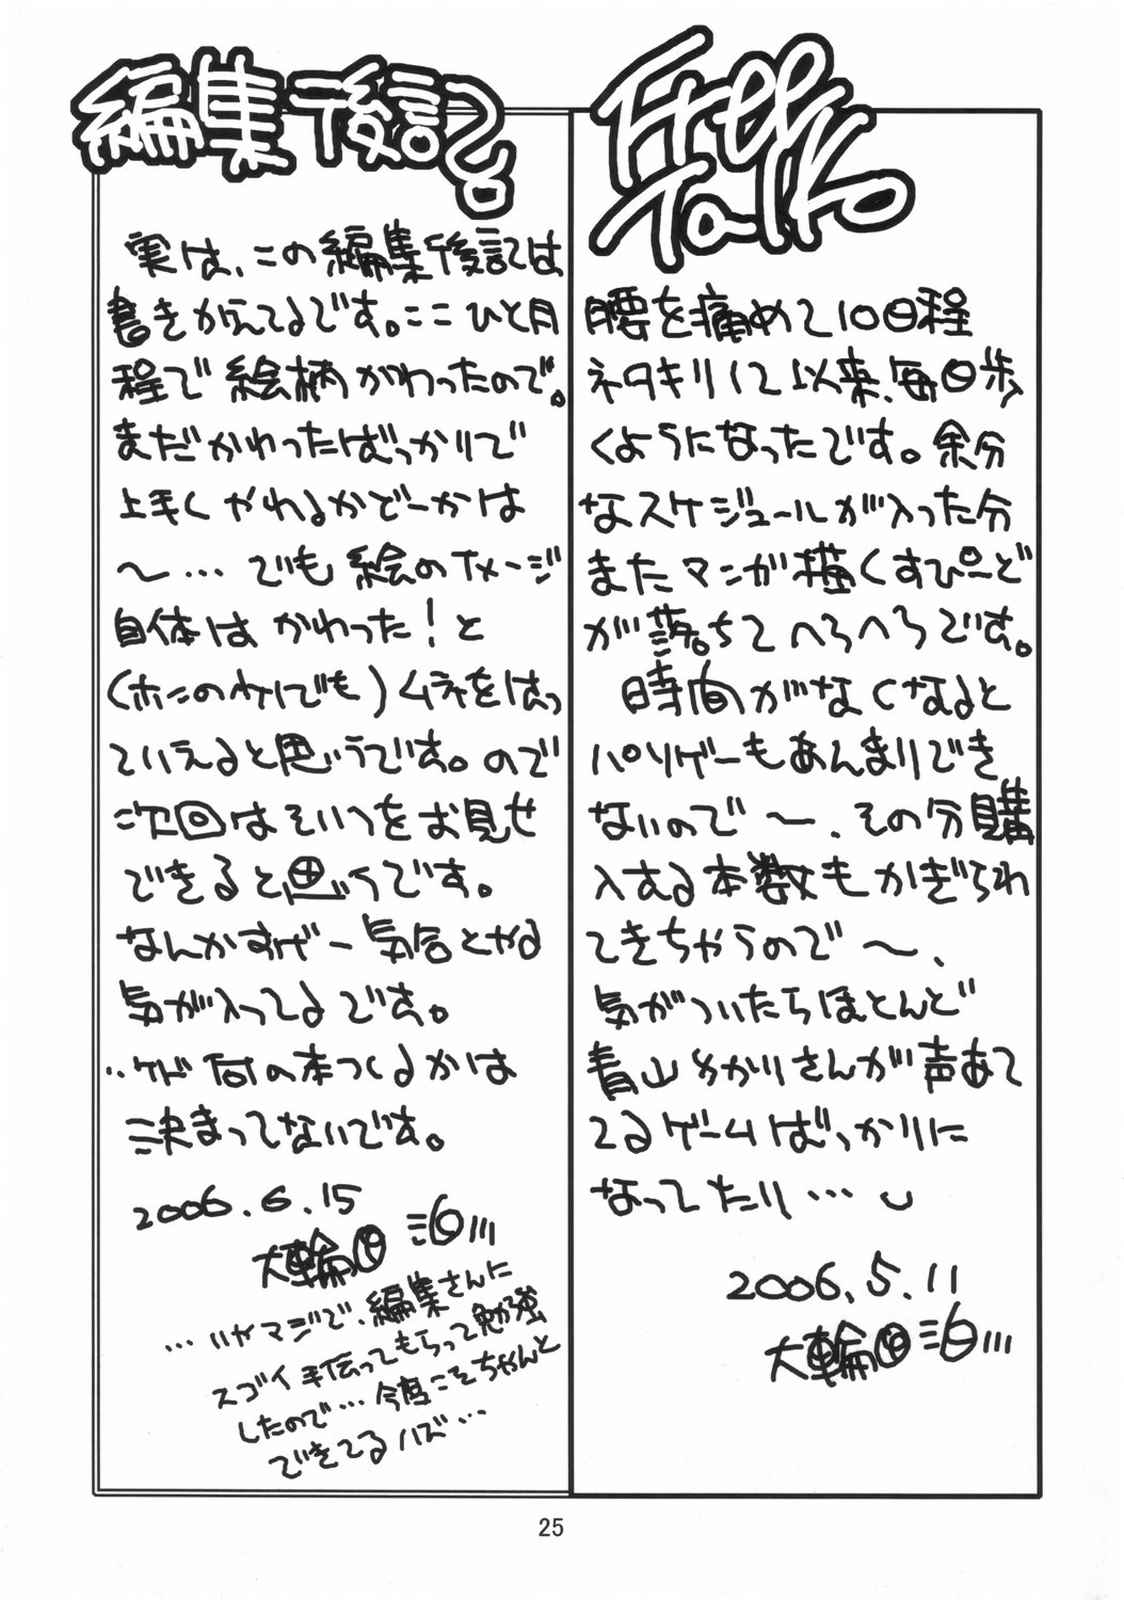 編集後記。
実は、この編集後記は、
書きかえてるです。ここひと月
程で絵柄がわったので。
まだかわったばっかりで
上手くやれるかどーかは
〜…でも絵のイメージ
自体はかわった！と
(ホンのケドでも)ムネをはっ
ていえると思うです。ので
次回はそいつをお見せ
できると思うです。
なんかすげー気合とやる
気が入ってるです。
‥ケド何の本つくるかは
決まってないです。
2006.6.15
大輪
…いやマジで、編集さんに
スゴイ手伝ってもらって勉強
したので…今度こそちゃんと
できてるハズ…
Free
Talk。
腰を痛めて10日程
ネタキリして以来、毎日歩
くようになったです。余分
なスケジュールが入った分
またマンガ描くすぴーど
が落ちてへろへろです。
時間がなくなると
パソゲーもあんまりでき
ないので〜、その分購
入する本数もかぎられ
てきちゃうので〜、
気がついたらほとんど
青山ゆかりさんが声あて
てるゲームばっかりに
なってたり…
2006.5.11
大輪
25